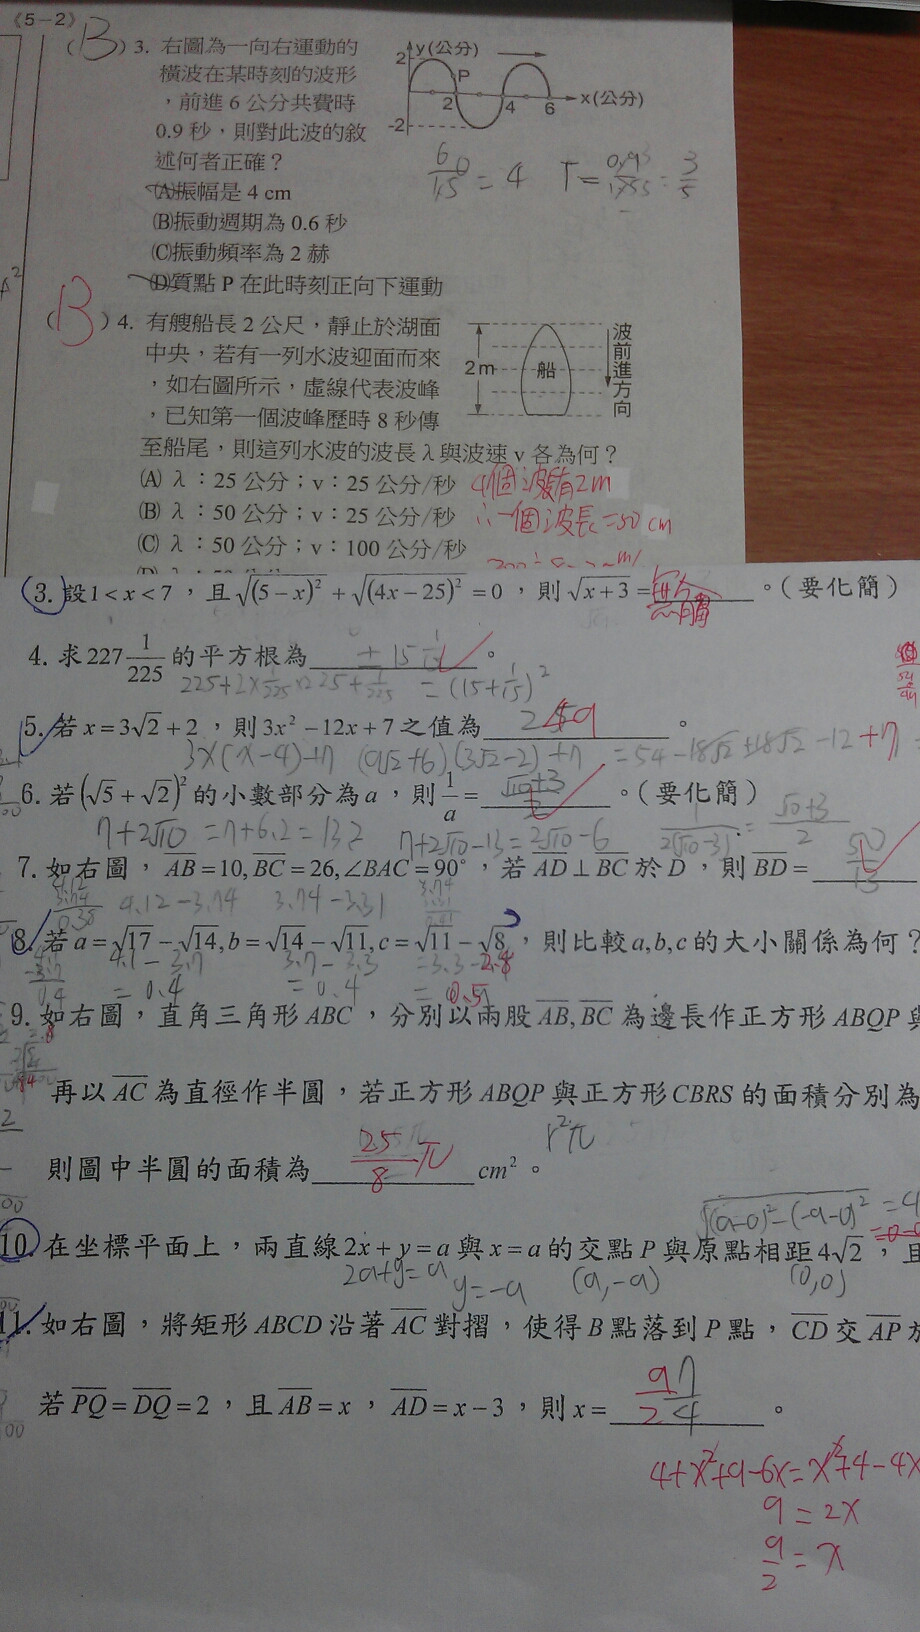 《5－2》
（B）3. 右圖為一向右運動的
橫波在某時刻的波形
，前進 6 公分共費時
0.9 秒，則對此波的敘
述何者正確？
(A)振幅是 4 cm
(B)振動週期為 0.6 秒
(C)振動頻率為 2 赫
(D)質點 P 在此時刻正向下運動
y(公分)
2
P
2 4 6 x(公分)
-2
（B）4. 有艘船長 2 公尺，靜止於湖面
中央，若有一列水波迎面而來
，如右圖所示，虛線代表波峰
，已知第一個波峰歷時 8 秒傳
至船尾，則這列水波的波長 λ 與波速 v 各為何？
2m
船
波前進方向
(A) λ：25 公分；v：25 公分/秒
(B) λ：50 公分；v：25 公分/秒
(C) λ：50 公分；v：100 公分/秒
∴一個波長=50 cm
3. 設1<x<7，且√(5-x)²+√(4x-25)²=0，則√x+3=。（要化簡）
4. 求227 1/225 的平方根為 ± 15 1/15。
=(15+1/15)²
5. 若x=3√2+2，則3x²-12x+7之值為。
3x(x-4)+7 (9√2+6)(3√2-2)+7 =54-18√2+18√2-12+7
6. 若(√5+√2)²的小數部分為a，則1/a=√10+3/2。（要化簡）
7+2√10 7+2√10-13=2√10-6 √10+3/2
7. 如右圖，AB=10,BC=26,∠BAC=90°，若AD⊥BC於D，則BD=50/13
4.12-3.74 3.74-3.31
8. 若a=√17-√14,b=√14-√11,c=√11-√8，則比較a,b,c的大小關係為何？
4.1-3.7 3.7-3.3 =3.3-2.8
=0.4 =0.4 =0.5
9. 如右圖，直角三角形ABC，分別以兩股AB,BC為邊長作正方形ABQP與
再以AC為直徑作半圓，若正方形ABQP與正方形CBRS的面積分別為
r²π
則圖中半圓的面積為25/8π cm²。
10. 在坐標平面上，兩直線2x+y=a與x=a的交點P與原點相距4√2，且
2a+y=a y=-a (a,-a) (0,0)
11. 如右圖，將矩形ABCD沿著AC對摺，使得B點落到P點，CD交AP於
若PQ=DQ=2，且AB=x，AD=x-3，則x=9/2。
4+x²+9-6x=x²+4-4x
9=2x
9/2=x